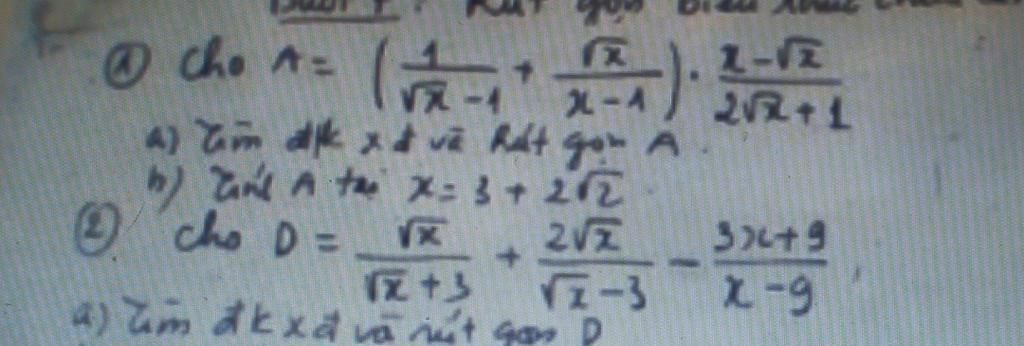 Buổi 1: Rút gọn biểu thức
① Cho A = (1/(√x - 1) + √x/(x - 1)) · (x - √x)/(2√x + 1)
a) Tìm đk xđ và Rút gọn A.
b) Tính A tại x = 3 + 2√2.
② Cho D = √x/(√x + 3) + 2√x/(√x - 3) - (3x + 9)/(x - 9),
a) Tìm đkxđ và rút gọn D